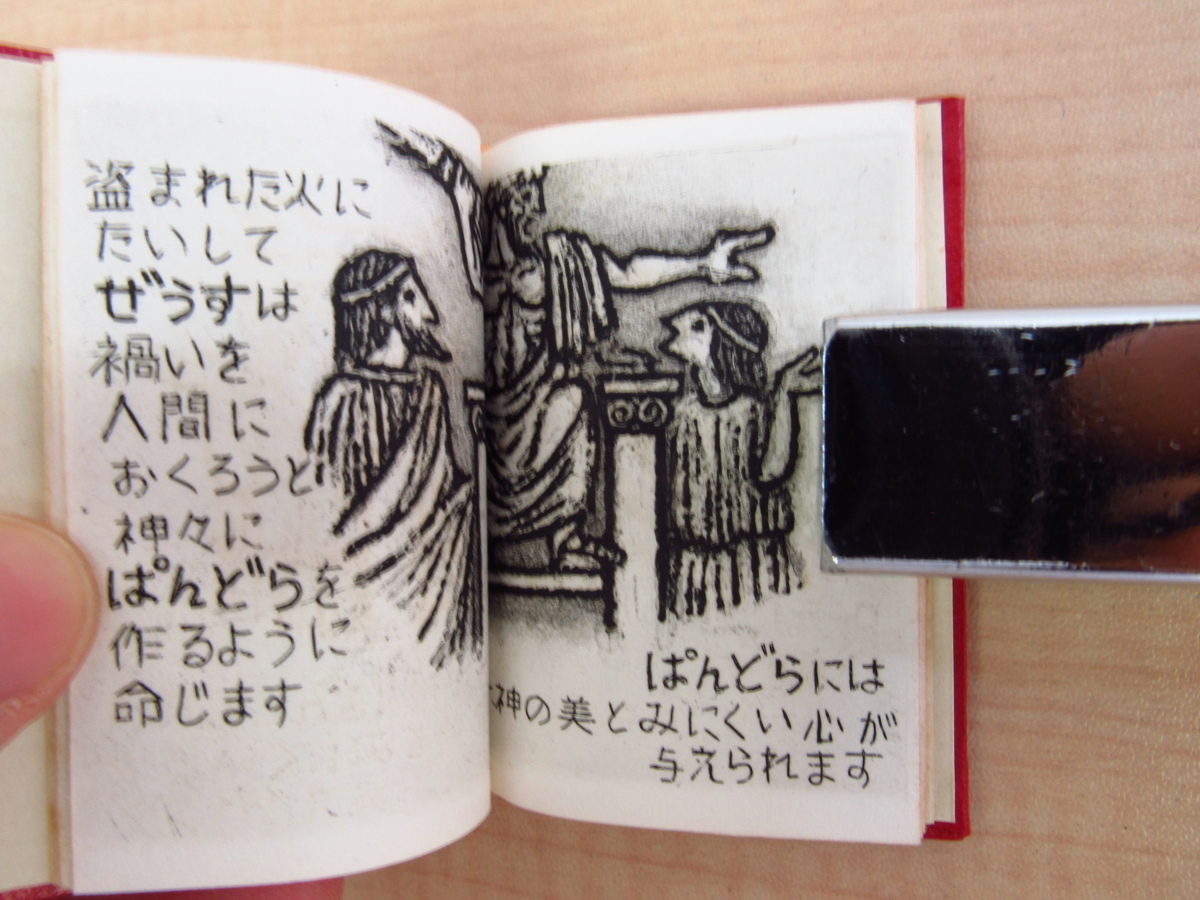 盗まれた火に
たいして
ぜうすは
禍いを
人間に
おくろうと
神々に
ぱんどらを
作るように
命じます
ぱんどらには
神の美とみにくい心が
与えられます